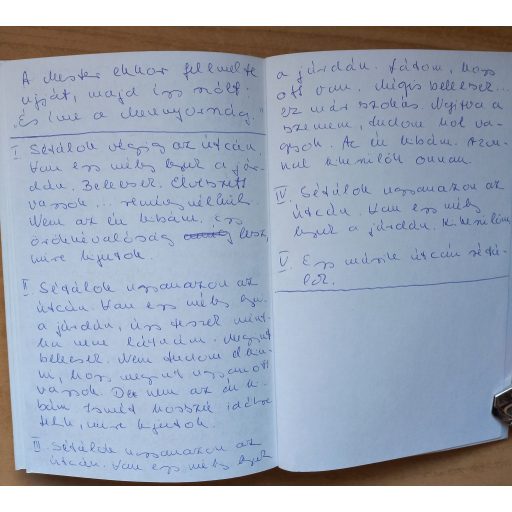 A Mester ekkor felemelte
ujját, majd így szólt:
"És íme a Mennyország."
I. Sétálok végig az utcán.
Van egy mély lyuk a jár-
dán. Beleesek. Elveszett
vagyok... reménytelenül.
Nem az én hibám, egy
örökkévalóság lesz,
mire kijutok.
II. Sétálok ugyanazon az
utcán. Van egy mély lyuk
a járdán, úgy teszek mint-
ha nem látnám. Megint
beleesek. Nem tudom elhin-
ni, hogy megint ugyanott
vagyok. De nem az én hi-
bám. Ismét hosszú időbe
telik, mire kijutok.
III. Sétálok ugyanazon az
utcán. Van egy mély lyuk
a járdán. Látom, hogy
ott van. Mégis beleesek...
ez már szokás. Nyitva a
szemem, tudom hol va-
gyok. Az én hibám. Azon-
nal kimászok onnan.
IV. Sétálok ugyanazon az
utcán. Van egy mély
lyuk a járdán. Kikerülöm.
V. Egy másik utcán sétá-
lok.